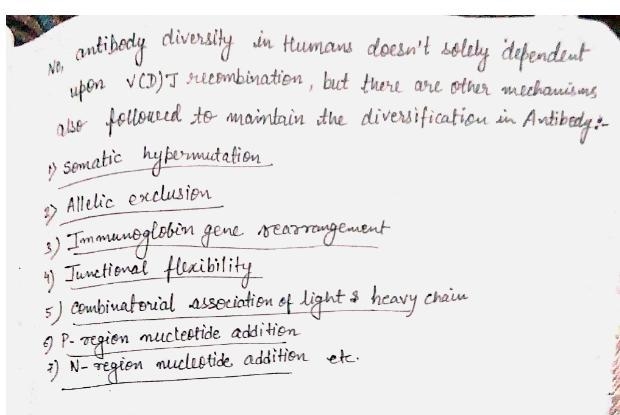 No, antibody diversity in Humans doesn't solely dependent
upon V(D)J recombination, but there are other mechanisms
also followed to maintain the diversification in Antibody:-
1) Somatic hypermutation
2) Allelic exclusion
3) Immunoglobin gene rearrangement
4) Junctional flexibility
5) Combinatorial association of light & heavy chain
6) P-region nucleotide addition
7) N-region nucleotide addition etc.